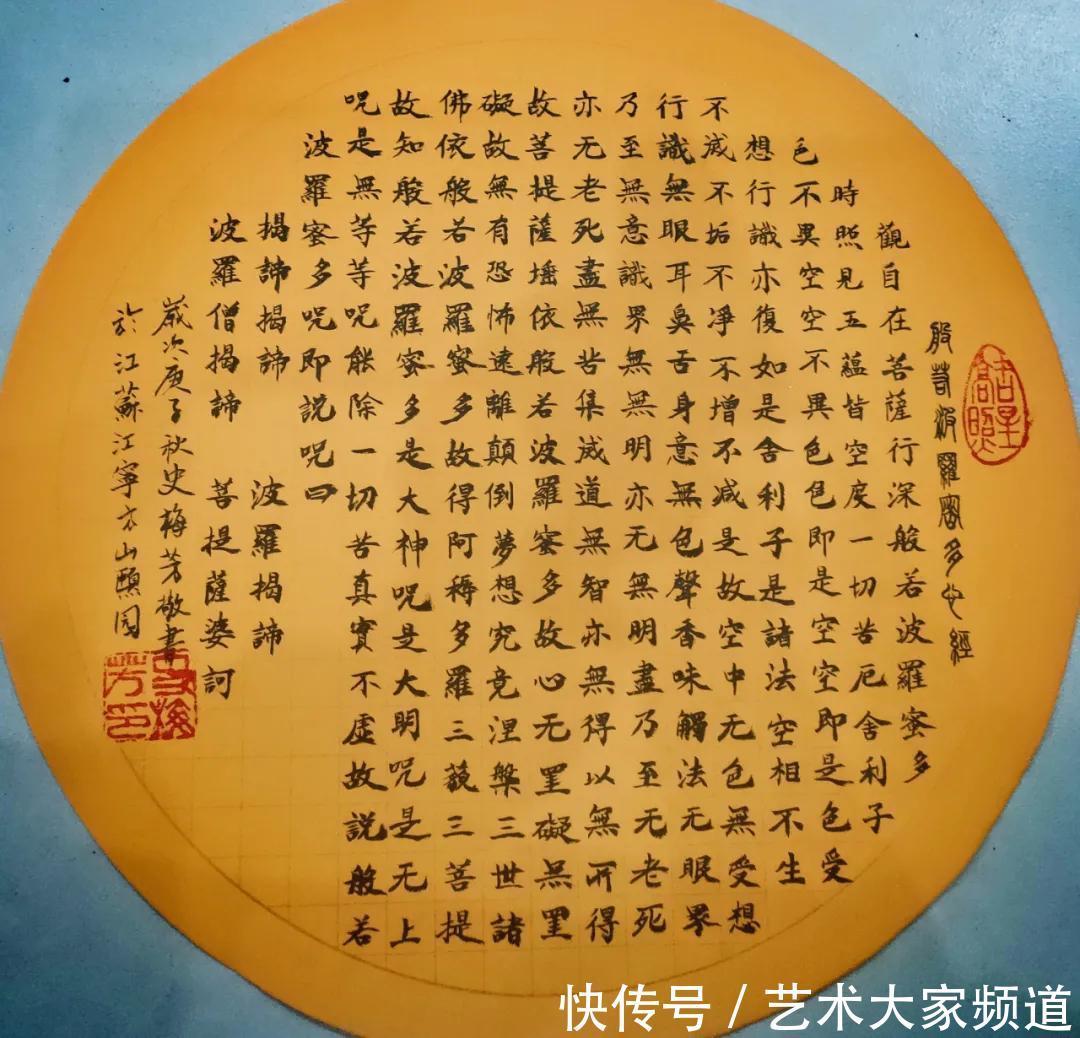 般若波羅蜜多心經
觀自在菩薩行深般若波羅蜜多
時照見五蘊皆空度一切苦厄舍利子
色不異空空不異色色即是空空即是色受
想行識亦復如是舍利子是諸法空相不生
不滅不垢不凈不增不減是故空中无色無受想
行識無眼耳鼻舌身意無色聲香味觸法无眼界
乃至無意識界無無明亦无無明盡乃至无老死
亦无老死盡無苦集滅道無智亦無得以無所得
故菩提薩埵依般若波羅蜜多故心无罣礙無罣
礙故無有恐怖遠離顛倒夢想究竟涅槃三世諸
佛依般若波羅蜜多故得阿耨多羅三藐三菩提
故知般若波羅蜜多是大神呪是大明呪是无上
呪是無等等呪能除一切苦真實不虛故説般若
波羅蜜多呪即説呪曰
揭諦揭諦 波羅揭諦
波羅僧揭諦 菩提薩婆訶
歲次庚子秋史梅芳敬書
於江蘇江寧方山頤園
史梅芳印
快传号 / 艺术大家频道